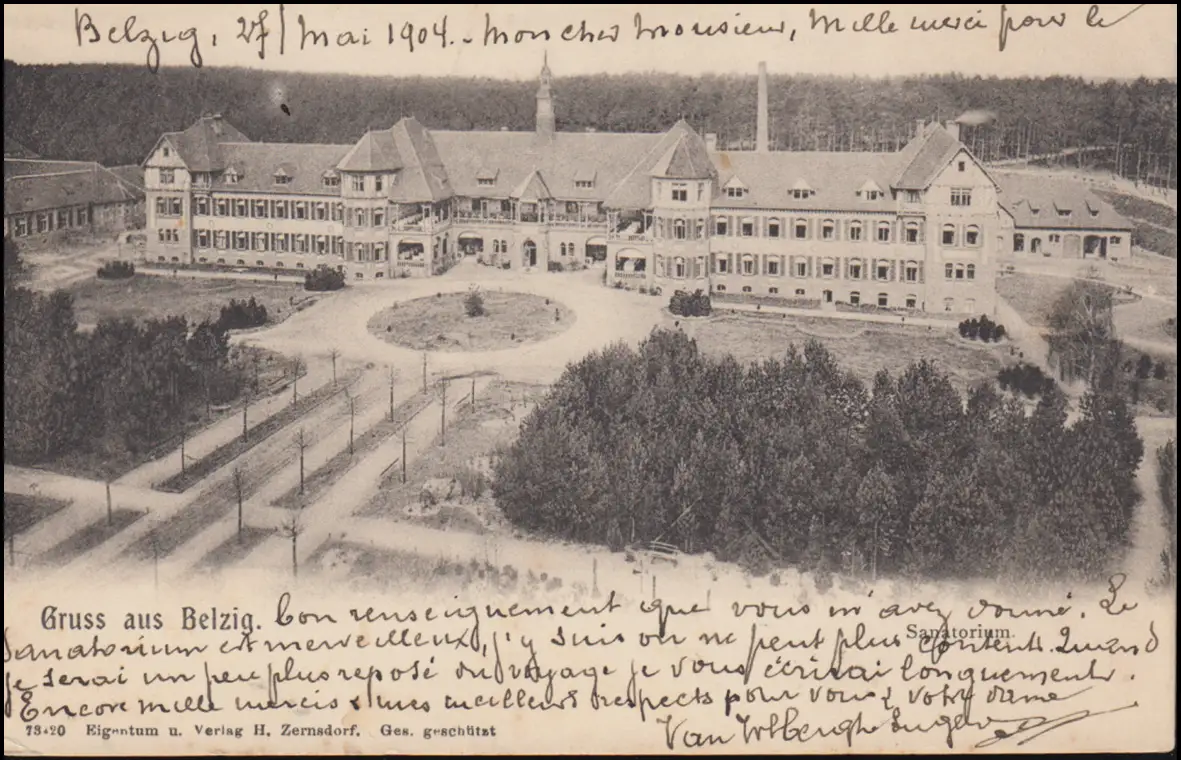 Belzig, 27/ Mai 1904. - Mon cher Monsieur, Mille merci pour le
Gruss aus Belzig. bon renseignement que vous m'avez donné. Le
Sanatorium.
Sanatorium est merveilleux, j'y suis on ne peut plus content. Quand
je serai un peu plus reposé du voyage je vous écrirai longuement.
Encore mille mercis & mes meilleurs respects pour vous & votre dame
Van
73420 Eigentum u. Verlag H. Zernsdorf. Ges. geschützt